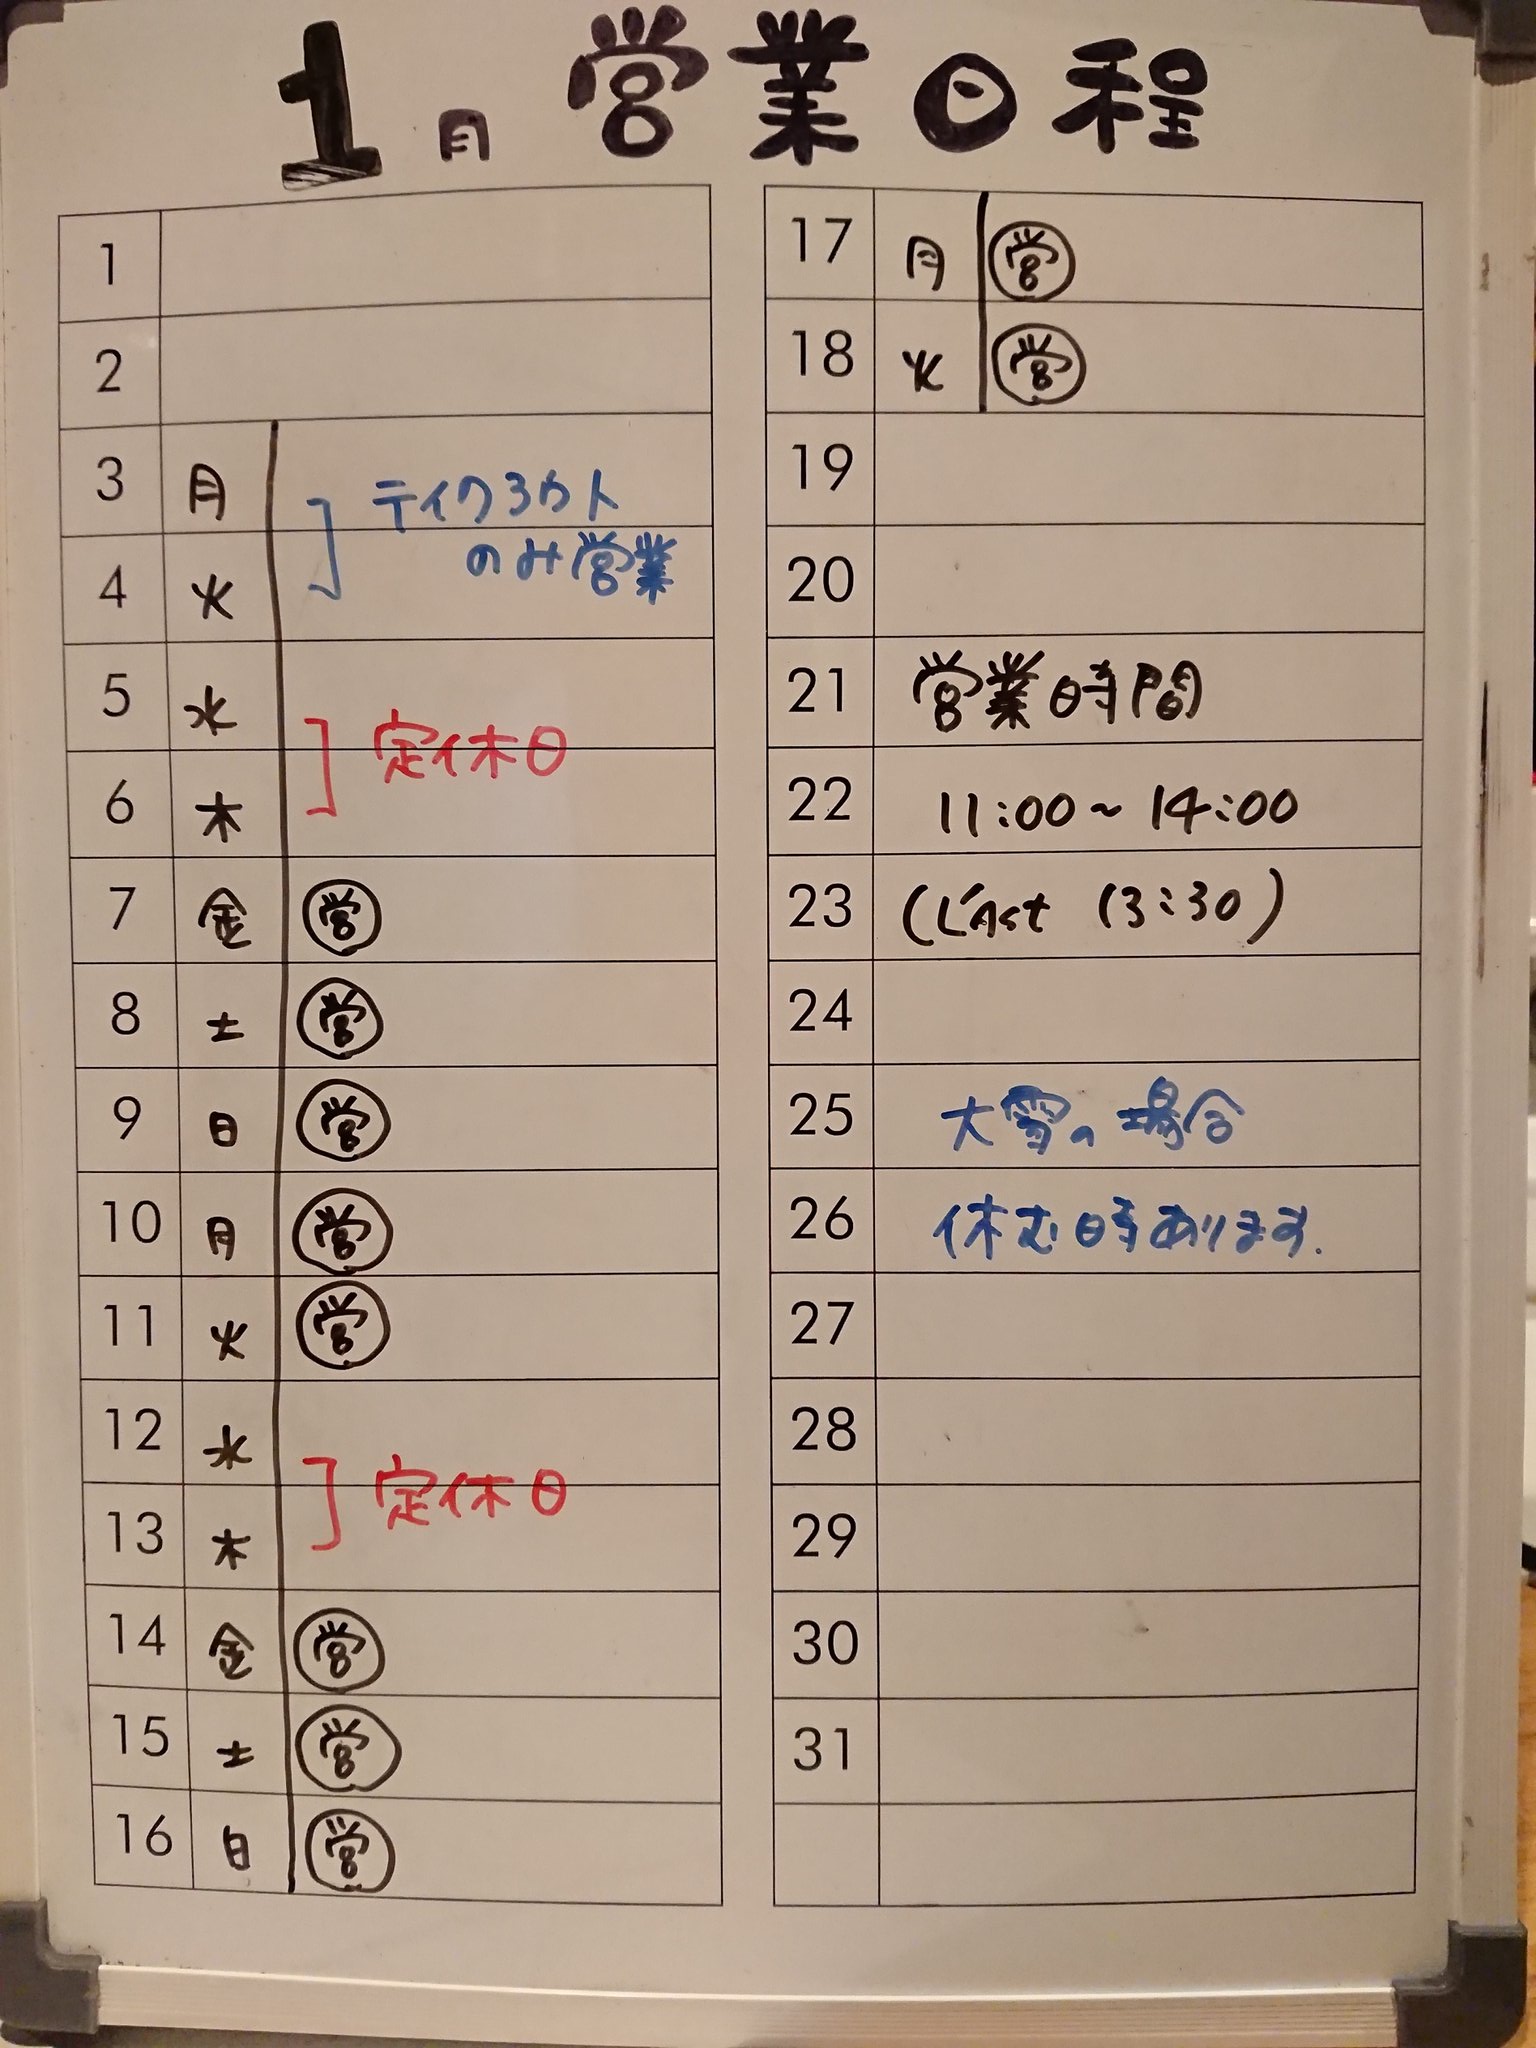 1月 営業日程
1
2
3 月 テイクアウト
4 火 のみ営業
5 水 定休日
6 木
7 金 営
8 土 営
9 日 営
10 月 営
11 火 営
12 水 定休日
13 木
14 金 営
15 土 営
16 日 営
17 月 営
18 火 営
19
20
21 営業時間
22 11:00~14:00
23 (L'ast 13:30)
24
25 大雪の場合
26 休む時あります.
27
28
29
30
31